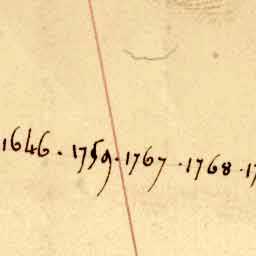 1646 . 1759 . 1767 . 1768 . 17